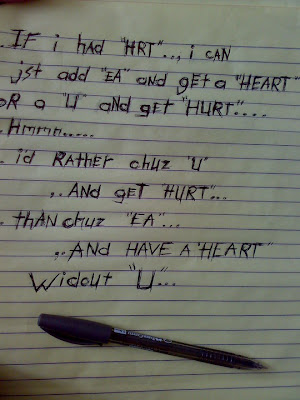 . IF i HAD "HRT"..., i CAN
jst add "EA" and gEt a "HEART"
OR a "U" and gEt "HURT"....
. Hmmn.....
. i'd RAtHER chuz "U"
,..AND gEt HURT"...
. thAN chuz "EA"...
,..AND HAVE A "HEARt"
Widout "U"...